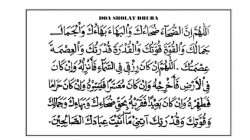 DOA SHOLAT DHUHA
اَللّٰهُمَّ اِنَّ الضُّحَآءَ ضُحَاءُكَ وَالْبَهَاءَ بَهَاءُكَ وَالْجَمَالَ
جَمَالُكَ وَالْقُوَّةَ قُوَّتُكَ وَالْقُدْرَةَ قُدْرَتُكَ وَالْعِصْمَةَ
عِصْمَتُكَ اَللّٰهُمَّ اِنْ كَانَ رِزْقِى فِى السَّمَآءِ فَأَنْزِلْهُ وَاِنْ كَانَ
فِى اْلاَرْضِ فَأَخْرِجْهُ وَاِنْ كَانَ مُعَسَّرًا فَيَسِّرْهُ وَاِنْ كَانَ حَرَامًا
فَطَهِّرْهُ وَاِنْ كَانَ بَعِيْدًا فَقَرِّبْهُ بِحَقِّ ضُحَاءِكَ وَبَهَاءِكَ وَجَمَالِكَ
وَقُوَّتِكَ وَقُدْرَتِكَ آتِنِىْ مَآاَتَيْتَ عِبَادَكَ الصَّالِحِيْنَ.